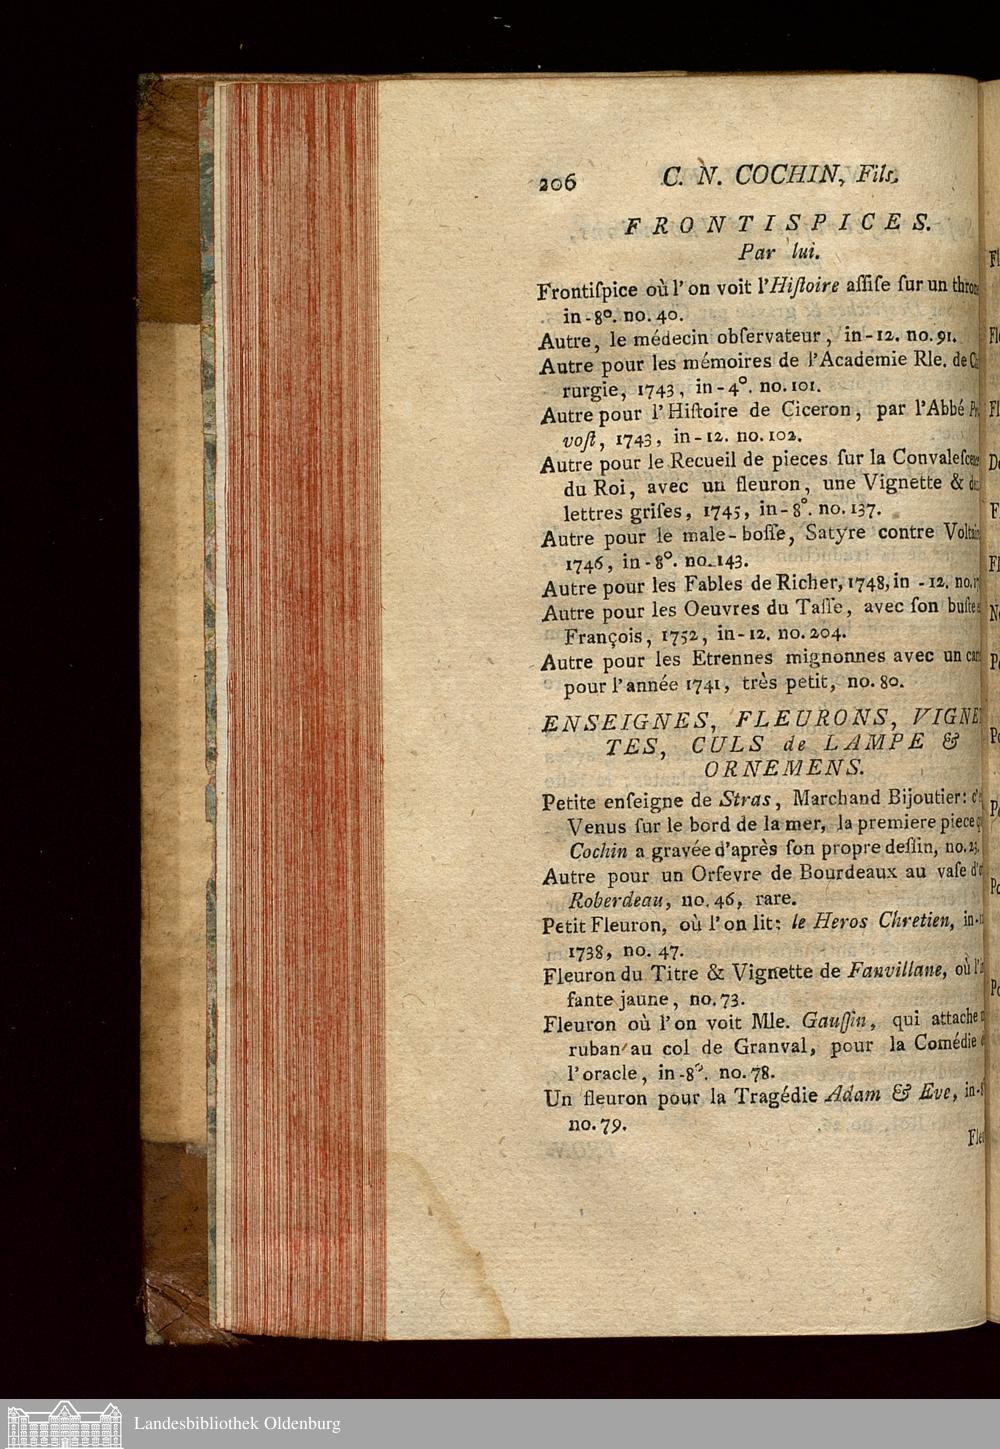 206 C. N. COCHIN, Fils.
FRONTISPICES.
Par lui.
Frontiſpice où l'on voit l'Hiſtoire aſſiſe ſur un thron
in-8°. no. 40.
Autre, le médecin obſervateur, in-12. no. 91.
Autre pour les mémoires de l'Academie Rle. de C
rurgie, 1743, in-4°. no. 101.
Autre pour l'Hiſtoire de Ciceron, par l'Abbé Pr
voſt, 1743, in-12. no. 102.
Autre pour le Recueil de pieces ſur la Convaleſce
du Roi, avec un fleuron, une Vignette & de
lettres griſes, 1745, in-8°. no. 137.
Autre pour le male-boſſe, Satyre contre Voltai
1746, in-8°. no. 143.
Autre pour les Fables de Richer, 1748, in-12. no.
Autre pour les Oeuvres du Taſſe, avec ſon buſte
François, 1752, in-12. no. 204.
Autre pour les Etrennes mignonnes avec un car
pour l'année 1741, très petit, no. 80.
ENSEIGNES, FLEURONS, VIGNE
TES, CULS de LAMPE &
ORNEMENS.
Petite enſeigne de Stras, Marchand Bijoutier: c'e
Venus ſur le bord de la mer, la premiere piece q
Cochin a gravée d'après ſon propre deſſin, no. 23.
Autre pour un Orfevre de Bourdeaux au vaſe d'o
Roberdeau, no. 46, rare.
Petit Fleuron, où l'on lit: le Heros Chretien, in-
1738, no. 47.
Fleuron du Titre & Vignette de Fanvillane, où l'
fante jaune, no. 73.
Fleuron où l'on voit Mle. Gauſſin, qui attache
ruban au col de Granval, pour la Comédie
l'oracle, in-8°. no. 78.
Un fleuron pour la Tragédie Adam & Eve, in-8
no. 79.
Fle
Landesbibliothek Oldenburg